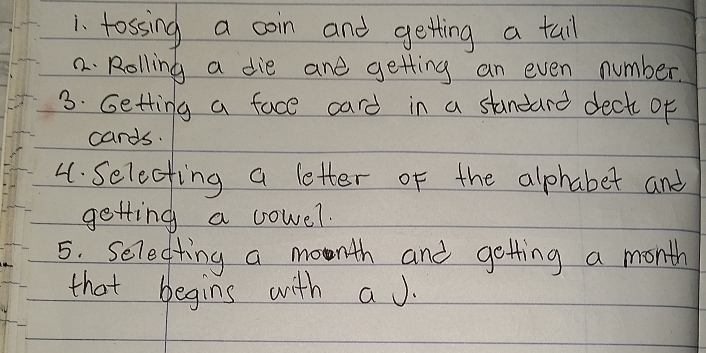 1. tossing a coin and getting a tail
2. Rolling a die and getting an even number.
3. Getting a face card in a standard deck of
cards.
4. Selecting a letter of the alphabet and
getting a vowel.
5. Selecting a month and getting a month
that begins with a J.